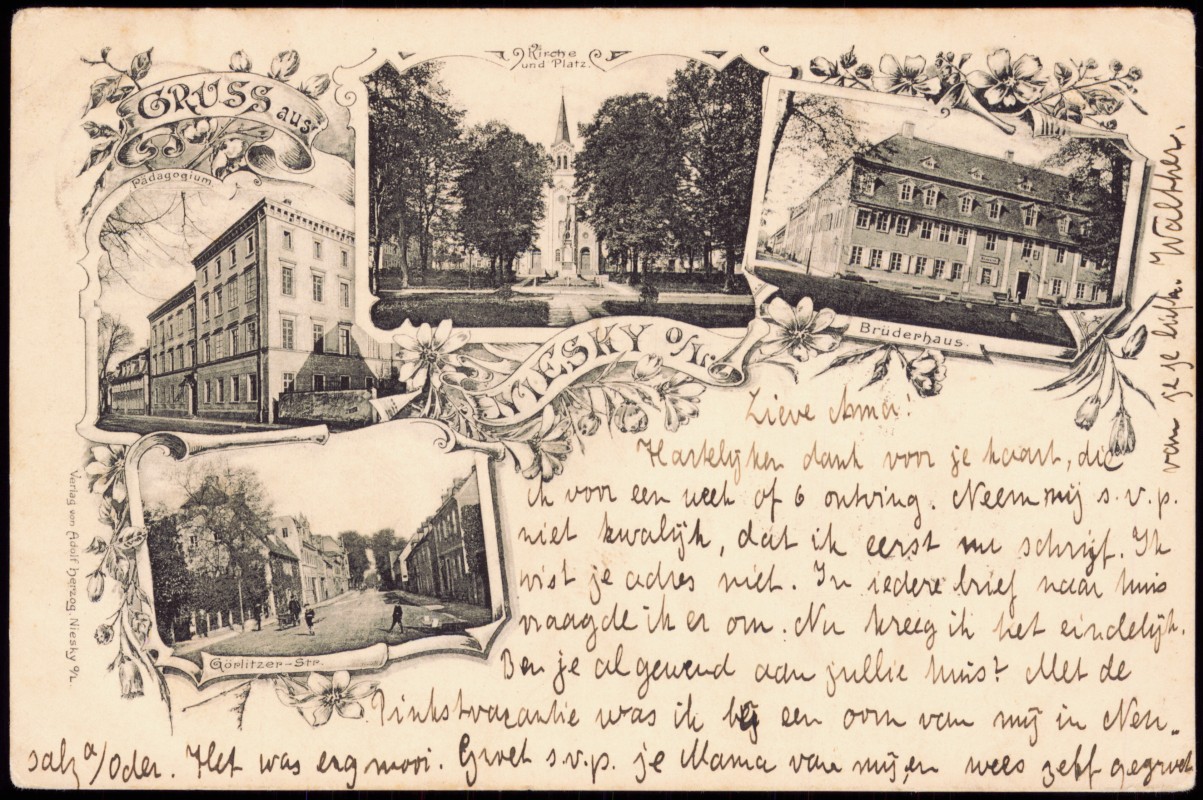 GRUSS aus
Kirche
und Platz.
Pädagogium.
NIESKY O/L.
Brüderhaus.
Görlitzer-Str.
Verlag von Adolf Herzog, Niesky O/L.
Lieve Anna!
Hartelijken dank voor je kaart, die
ik voor een week of 6 ontving. Neem mij s.v.p.
niet kwalijk, dat ik eerst nu schrijf. Ik
wist je adres niet. In iedere brief naar huis
vraagde ik er om. Nu kreeg ik het eindelijk.
Ben je al gewend aan jullie huis? Met de
Pinkstvacantie was ik bij een oom van mij in Neu-
salz a/Oder. Het was erg mooi. Groet s.v.p. je Mama van mij en wees zelf gegroet
van je je liefh. Walther.